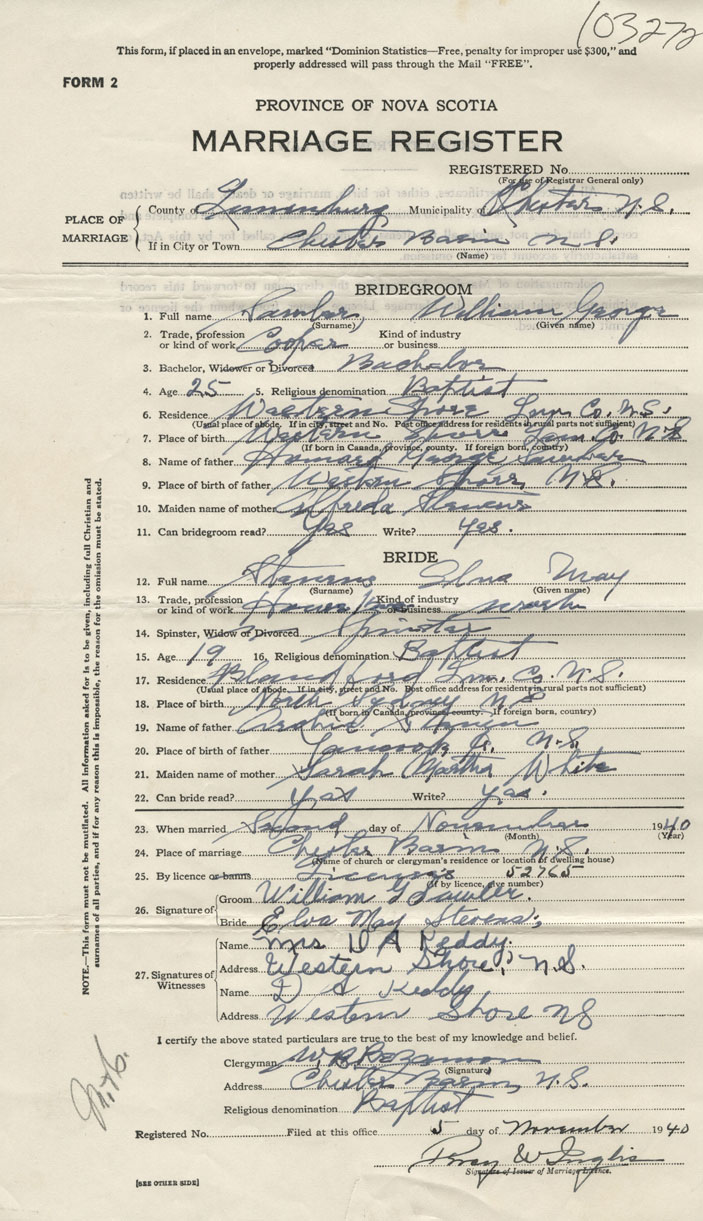 103272
This form, if placed in an envelope, marked "Dominion Statistics—Free, penalty for improper use $300," and
properly addressed will pass through the Mail "FREE".
FORM 2
PROVINCE OF NOVA SCOTIA
MARRIAGE REGISTER
REGISTERED No.
(For use of Registrar General only)
PLACE OF MARRIAGE
County of Lunenburg Municipality of Chester N.S.
If in City or Town Chester Basin N S.
(Name)
BRIDEGROOM
1. Full name William George
(Surname) (Given name)
2. Trade, profession or kind of work Cooper Kind of industry or business
3. Bachelor, Widower or Divorced Bachelor
4. Age 25 5. Religious denomination Baptist
6. Residence Western Shore Lun. Co. N.S.
(Usual place of abode. If in city, street and No. Post office address for residents in rural parts not sufficient)
7. Place of birth Western Shore Lun. Co. N S
(If born in Canada, province, county. If foreign born, country)
8. Name of father Howard George
9. Place of birth of father Western Shore, N.S.
10. Maiden name of mother Alfreda Stevens
11. Can bridegroom read? Yes Write? Yes.
BRIDE
12. Full name Stevens Elva May
(Surname) (Given name)
13. Trade, profession or kind of work House Kind of industry or business
14. Spinster, Widow or Divorced Spinster
15. Age 19 16. Religious denomination Baptist
17. Residence Blandford Lun. Co. N.S.
(Usual place of abode. If in city, street and No. Post office address for residents in rural parts not sufficient)
18. Place of birth North Sydney N S
(If born in Canada, province county. If foreign born, country)
19. Name of father Stevens
20. Place of birth of father N.S.
21. Maiden name of mother Sarah Martha White
22. Can bride read? Yes Write? Yes.
23. When married Second day of November 1940
(Month) (Year)
24. Place of marriage Chester Basin N.S.
(Name of church or clergyman's residence or location of dwelling house)
25. By licence or banns License 52765
(If by licence, give number)
26. Signature of
Groom William G Sawler.
Bride Elva May Stevens.
27. Signatures of Witnesses
Name Mrs D A Keddy.
Address Western Shore, N.S.
Name D A Keddy
Address Western Shore NS
I certify the above stated particulars are true to the best of my knowledge and belief.
Clergyman W. B. Bezanson
(Signature)
Address Chester Basin, N.S.
Religious denomination Baptist
Registered No. Filed at this office 5 day of November 1940
Percy W Inglis
Signature of Issuer of Marriage Licence.
[SEE OTHER SIDE]
NOTE.—This form must not be mutilated. All information asked for is to be given, including full Christian and
surnames of all parties, and if for any reason this is impossible, the reason for the omission must be stated.